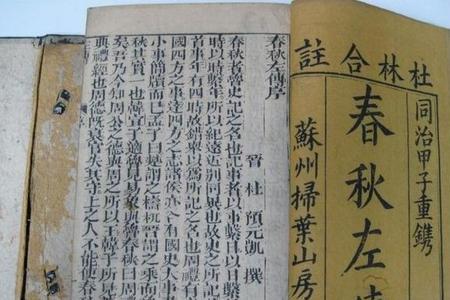 杜林合註
同治甲子重鐫
春秋左
蘇州掃葉山房
春秋左傳序
晉 杜 預元凱 撰
春秋者魯史記之名也記事者以事繫日以日繫
時以時繫年所以紀遠近別同異也故史之所記
首事年有四時故錯舉以為所記之名也周禮有
國四方之事達四方之志諸侯亦各有國史大事
小事簡牘而已孟子曰楚謂之檮杌晉謂之乘而
其實一也韓宣子適魯見易象與魯春秋曰周
矣吾乃今知周公之德與周之所以王韓子所見
典禮經也周德既衰官失其守上之人不能使春